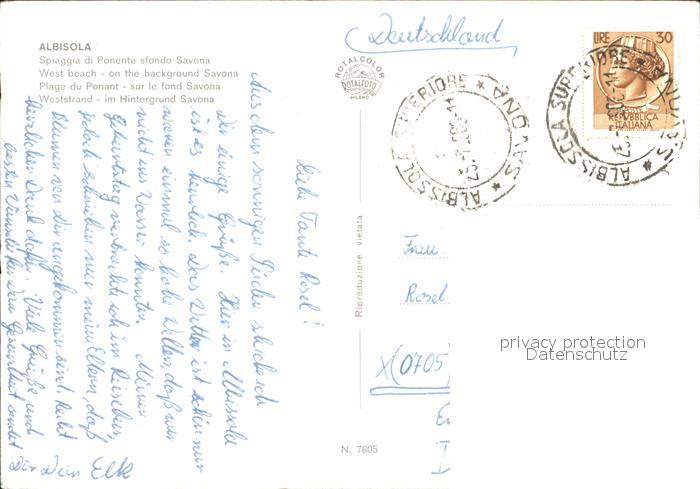 Deutschland
ALBISOLA
Spiaggia di Ponente sfondo Savona
West beach - on the background Savona
Plage du Ponant - sur le fond Savona
Weststrand - im Hintergrund Savona
ROTALCOLOR
ROTALFOTO
MILANO
ALBISSOLA SUPERIORE * SAVONA *
LIRE 30
POSTE
REPVBBLICA
ITALIANA
ALBISSOLA SUPERIORE * SAVONA *
Liebe Tante Rosel!
Aus dem sonnigen Süden schick ich
Dir einige Grüße. Hier in Albissola
ist es herrlich. Das Wetter ist schön nur
waren einmal so hohe Wellen, daß wir
nicht ins Wasser konnten. Meinen
Geburtstag verbrachte ich im Reisebus,
jedoch schrieben mir meine Eltern, daß
Blumen von Dir angekommen sind. Recht
herzlichen Dank dafür. Viele Grüße und
besten Wünsche Deine Gesundheit sendet
Dir Dein Elk
Riproduzione vietata
N. 7605
Frau
Rosel
X(0705)
privacy protection
Datenschutz